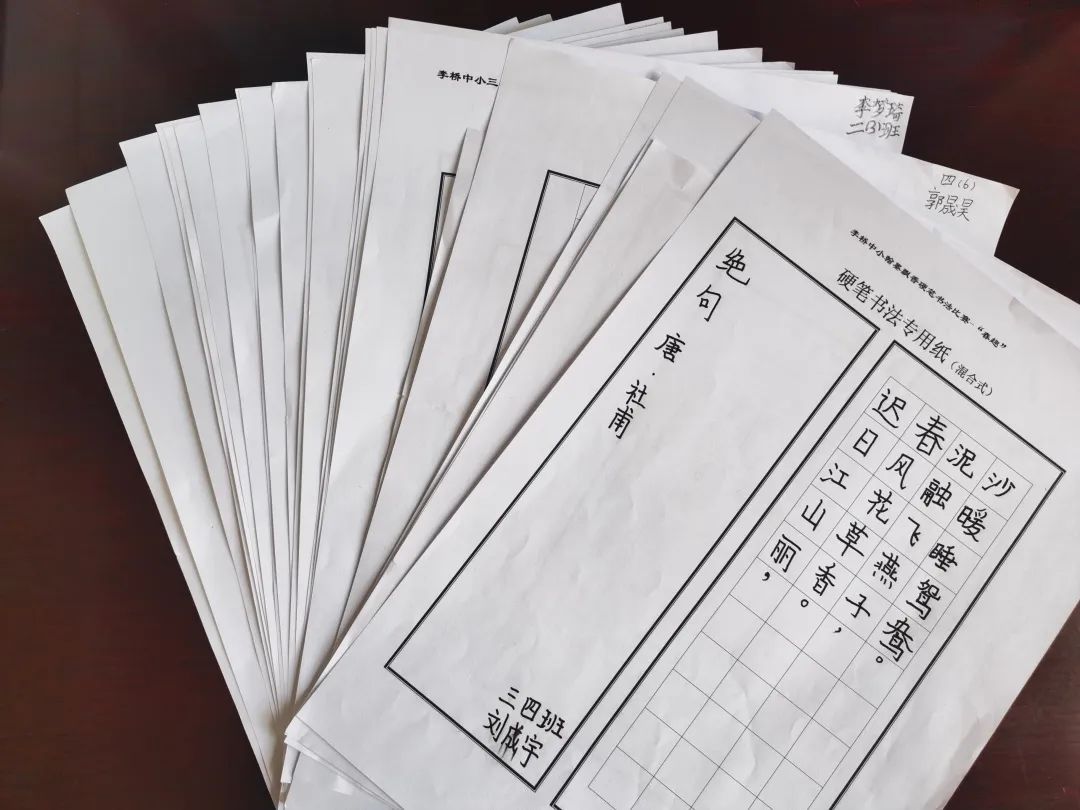 李桥中小三
李梦琦
二(3)班
四(6)
郭晟昊
李桥中小翰墨飘香硬笔书法比赛-“春趣”
硬笔书法专用纸(混合式)
绝句
唐·社甫
迟日江山丽，
春风花草香。
泥融飞燕子，
沙暖睡鸳鸯。
三四班
刘成宇